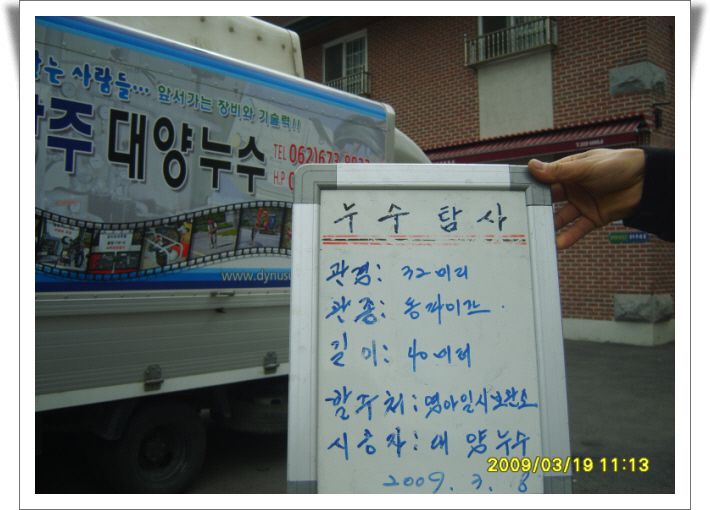 는 사람들... 앞서가는 장비와 기술력!!
주 대양누수
TEL 062)673
H.P
www.dynusu
누수탐사
관경: 32미리
관종: 농파이프
길이: 40미터
발주처: 영아일시보호소
시공자: 대양누수
2009. 3. 8
2009/03/19 11:13